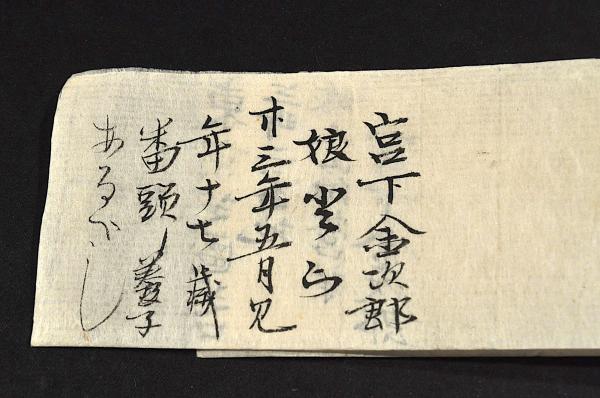 宮下金次郎
娘
三年五月見
年十七歳
番頭ノ養子
あるべし